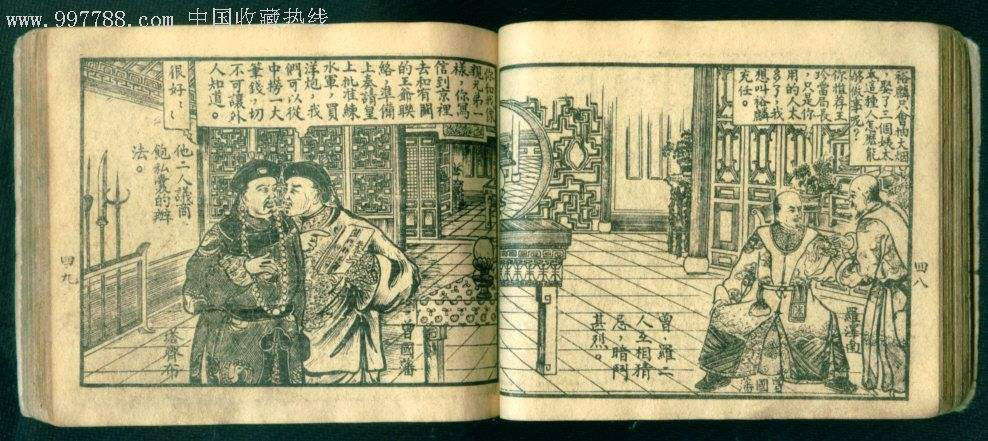 www.997788.com 中国收藏热线
裕麟只會抽大烟
，娶了三個姨太
太這種人怎麽能
够做事呢？
你推荐王
珍當局長
，只是你
用的人太
多了，我
想叫裕麟
充任。
四八
羅澤南
曾國藩
曾、羅二
人互相猜
忌，暗鬥
甚烈。
你和我像
親兄弟一
樣，你寫
信到京裡
去和有關
的王爺聯
絡，準備
上奏請皇
上批准練
水軍，買
洋炮，我
們可以從
中撈一大
筆錢，切
不可讓外
人知道。
很好：：
曾國藩
他二人議商
飽私囊的辦
法。
塔齊布
四九